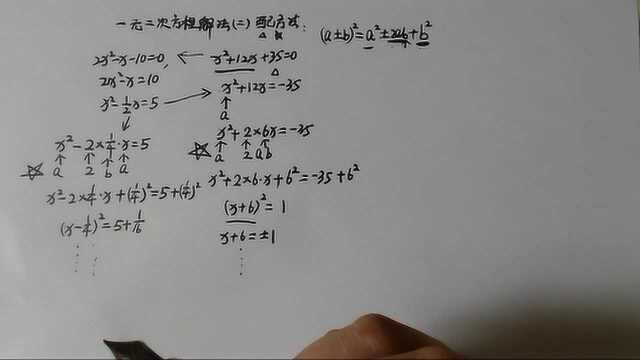 一元二次方程解法(二)配方法:
(a±b)²=a²±2ab+b²
2x²-x-10=0,
2x²-x=10
x²-½x=5
x²-2×¼·x=5
a 2 b a
x²-2×¼·x+(¼)²=5+(¼)²
(x-¼)²=5+1/16
x²+12x+35=0
x²+12x=-35
a
x²+2×6x=-35
a 2 a b
x²+2×6·x+6²=-35+6²
(x+6)²=1
x+6=±1